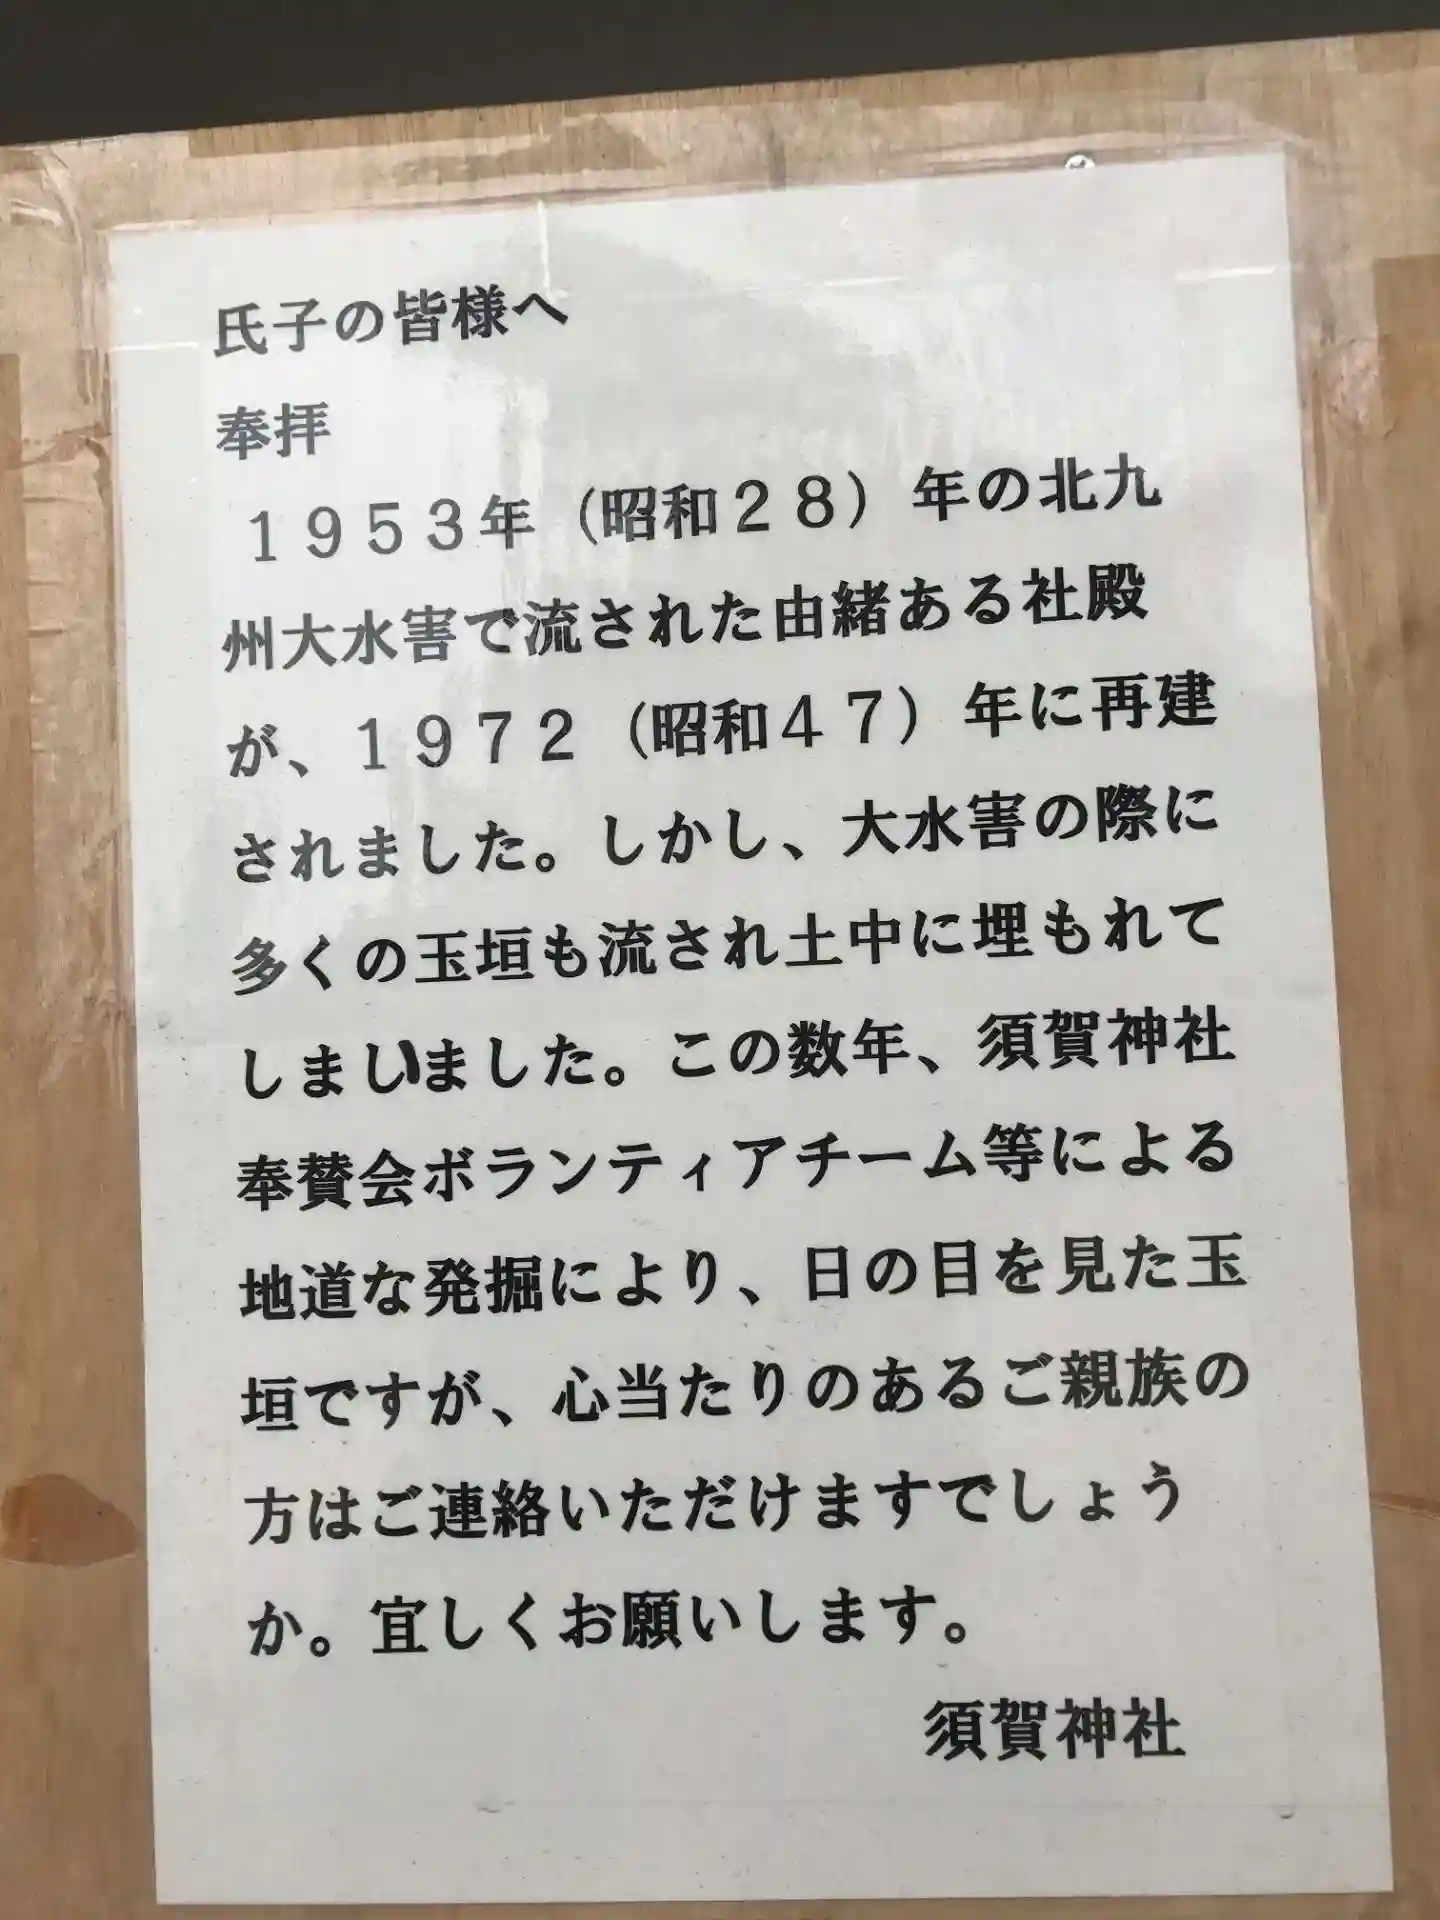 氏子の皆様へ
奉拝
１９５３年（昭和２８）年の北九
州大水害で流された由緒ある社殿
が、１９７２（昭和４７）年に再建
されました。しかし、大水害の際に
多くの玉垣も流され土中に埋もれて
しまいました。この数年、須賀神社
奉賛会ボランティアチーム等による
地道な発掘により、日の目を見た玉
垣ですが、心当たりのあるご親族の
方はご連絡いただけますでしょう
か。宜しくお願いします。
須賀神社